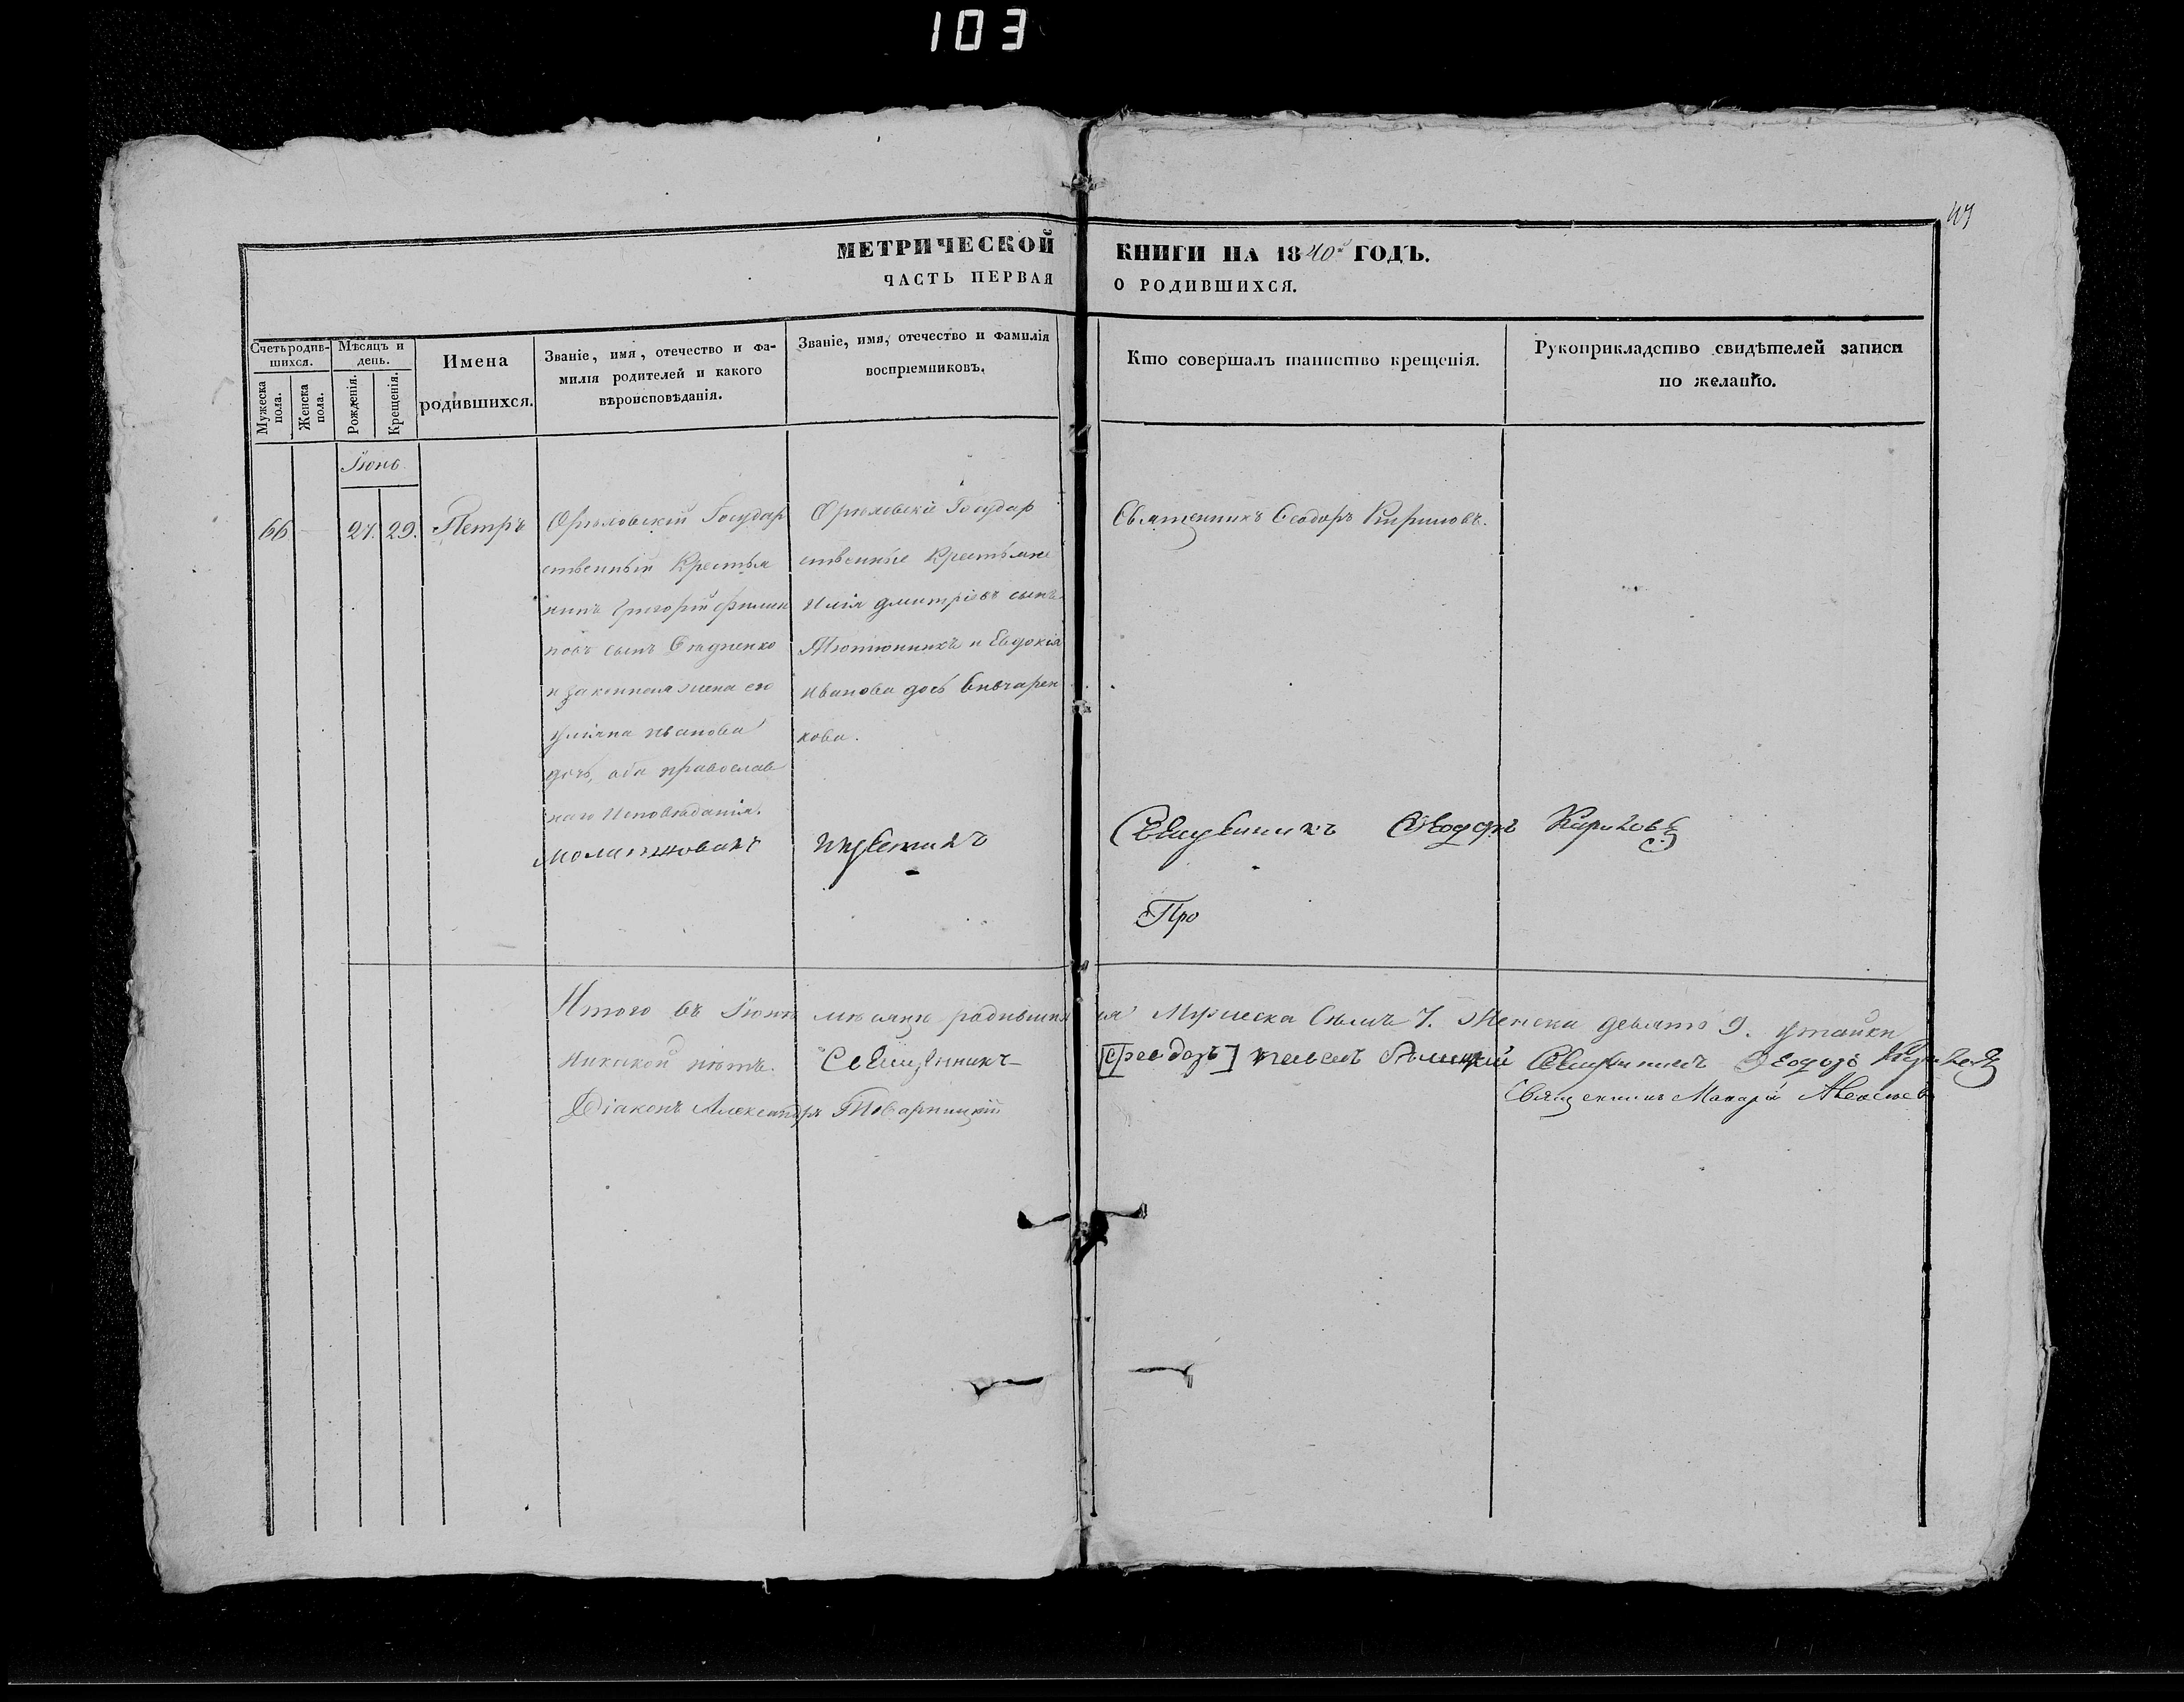 103
47
МЕТРИЧЕСКОЙ КНИГИ НА 1840й ГОДЪ.
ЧАСТЬ ПЕРВАЯ О РОДИВШИХСЯ.
Счетъ родившихся.
Мужеска пола.
Женска пола.
Мѣсяцъ и день.
Рожденія.
Крещенія.
Имена родившихся.
Званіе, имя, отечество и фа-
милія родителей и какого
вѣроисповѣданія.
Званіе, имя, отечество и фамилія
воспріемниковъ.
Кто совершалъ таинство крещенія.
Рукоприкладство свидѣтелей записи
по желанію.
Іюнь
66 27. 29. Петръ
Орѣловскій Государ
ственный Крестья
нинъ Григорій Филип
повъ сынъ
и законная жена его
Иванова
дочь, оба православ
наго Исповѣданія.
Орѣловскіе Государ
ственные Крестьяне
Илія Дмитріевъ сынъ
Тютюнникъ и Евдокія
Иванова дочь Овчарен
кова.
Священникъ Феодоръ Кириловъ.
Священникъ Феодоръ Кириловъ
Про
Итого въ Іюнѣ мѣсяцѣ родившихся Мужеска Семь 7. Женска девять 9. утайки
никакой нѣтъ. Священникъ Священникъ Феодоръ
Діаконъ Александръ Товарницкій
Священникъ Макарій